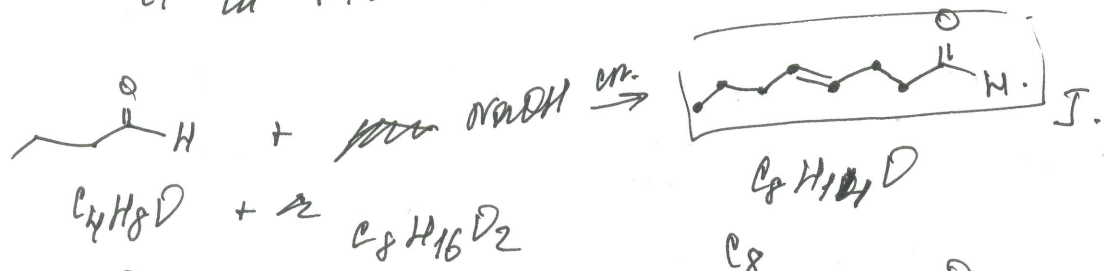 O
O
H + NaOH cn. → H. I.
C4H8O + 2 C8H16O2 C8H14O
C8 O